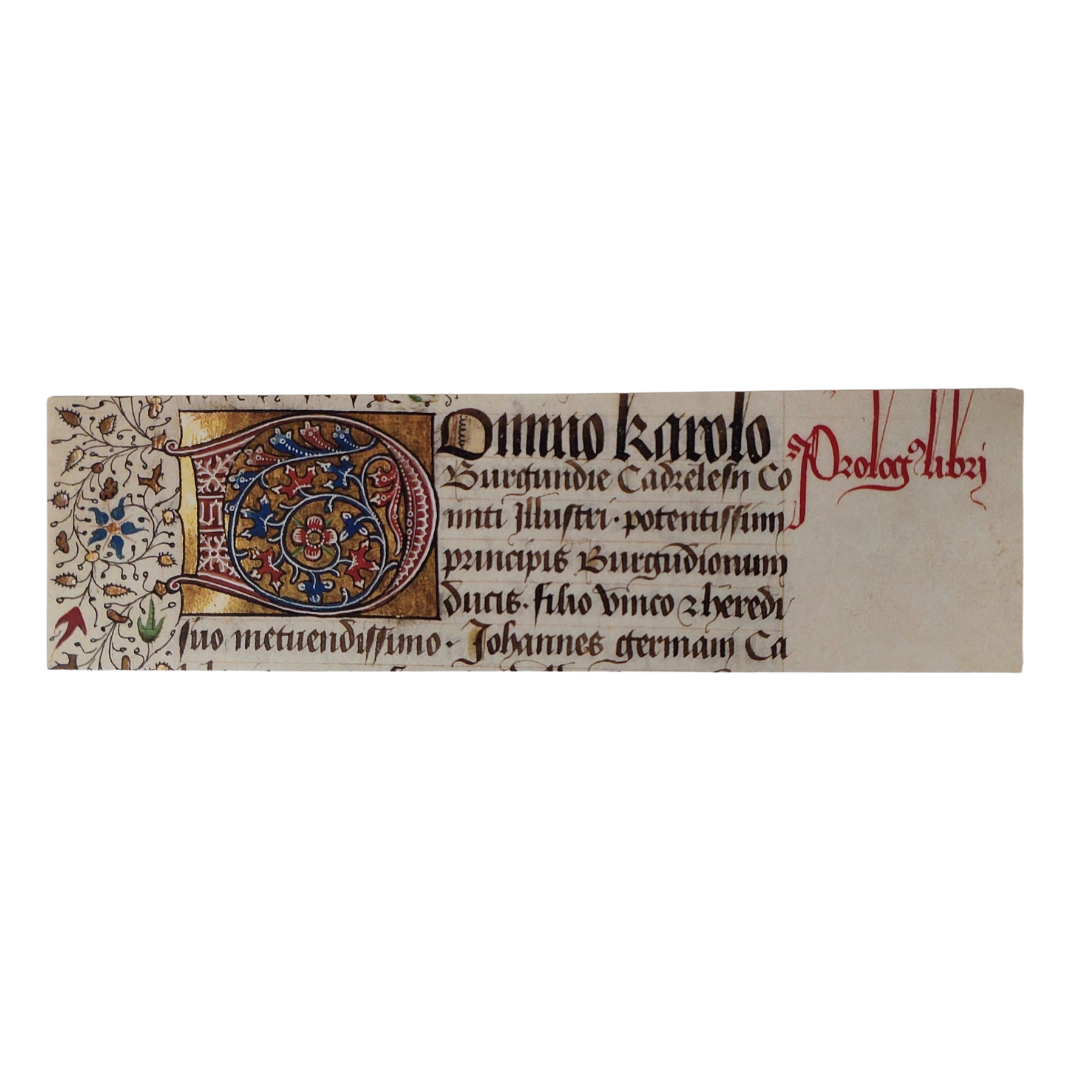 DOmino karolo
Burgundie Cadrelesii Co
miti Illustri · potentissimi
principis Burgudionum
ducis · filio vnico ⁊ heredi
suo metuendissimo · Johannes germani Ca
Prologꝰ libri